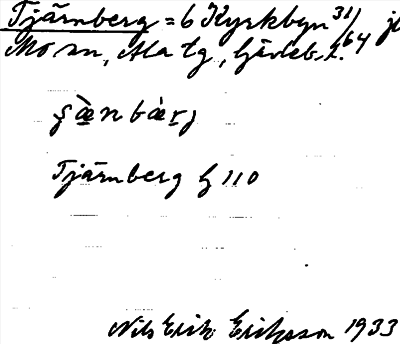 Tjärnberg = 6 Kyrkbyn 31/64
Mo sn, Ala tg, Gävleb. l.
Tjärnberg G 110
Nils Erik Eriksson 1933